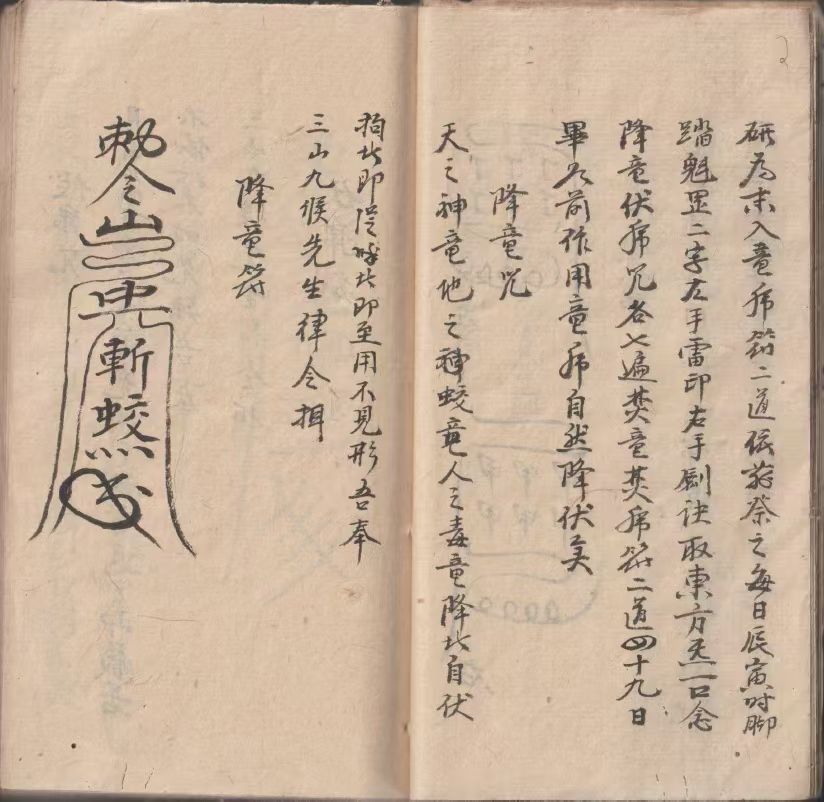 研為末入竜乕符二道依前祭之每日辰寅时脚
踏魁罡二字左手雷印右手剑诀取東方炁一口念
降竜伏乕咒各七遍焚竜焚乕符二道四十九日
畢前作用竜乕自然降伏矣
降竜咒
天之神竜地之神蛟竜人之毒竜降此自伏
此即從呼此即至用不見形吾奉
三山九候先生律令
降竜符
勅令山
斬蛟